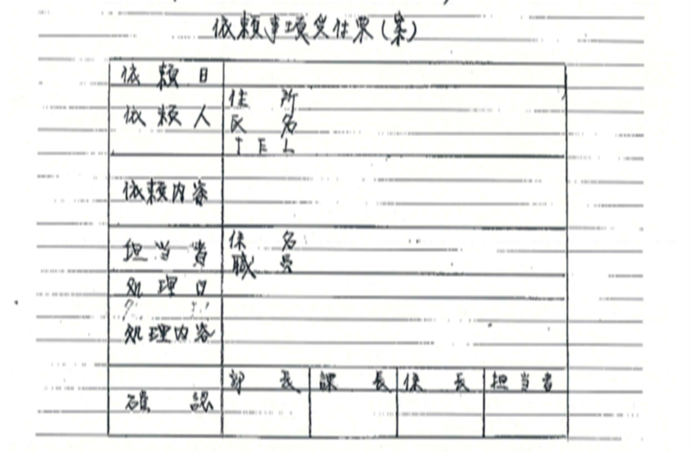 依頼事項受付票(案)
依頼日
依頼人 住所
氏名
TEL
依頼内容
担当者 係名
職員
処理日
処理内容
確認 部長 課長 係長 担当者